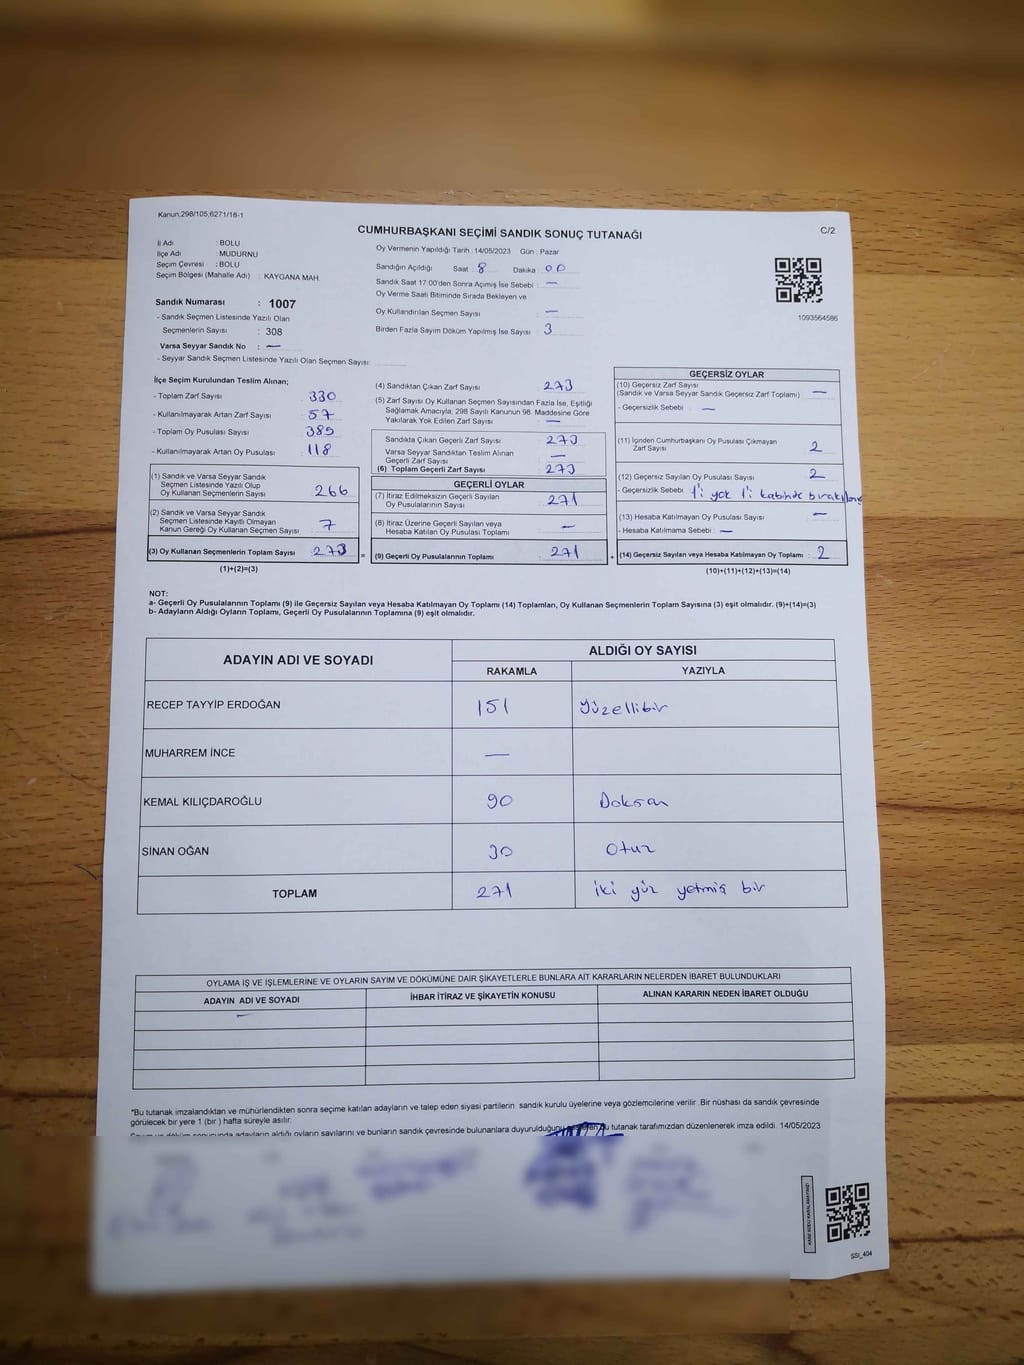 Kanun;298/105;6271/18-1
CUMHURBAŞKANI SEÇİMİ SANDIK SONUÇ TUTANAĞI
C/2
İl Adı : BOLU
İlçe Adı : MUDURNU
Seçim Çevresi : BOLU
Seçim Bölgesi (Mahalle Adı) : KAYGANA MAH.
Oy Vermenin Yapıldığı Tarih : 14/05/2023 Gün : Pazar
Sandığın Açıldığı Saat : 8 Dakika : 00
Sandık Saat 17:00'den Sonra Açımış İse Sebebi : —
Oy Verme Saati Bitiminde Sırada Bekleyen ve
Oy Kullandırılan Seçmen Sayısı : —
Birden Fazla Sayım Döküm Yapılmış İse Sayısı : 3
1093564586
Sandık Numarası : 1007
- Sandık Seçmen Listesinde Yazılı Olan
Seçmenlerin Sayısı : 308
Varsa Seyyar Sandık No : —
- Seyyar Sandık Seçmen Listesinde Yazılı Olan Seçmen Sayısı:
İlçe Seçim Kurulundan Teslim Alınan;
- Toplam Zarf Sayısı : 330
- Kullanılmayarak Artan Zarf Sayısı : 57
- Toplam Oy Pusulası Sayısı : 389
- Kullanılmayarak Artan Oy Pusulası : 118
(1) Sandık ve Varsa Seyyar Sandık
Seçmen Listesinde Yazılı Olup
Oy Kullanan Seçmenlerin Sayısı : 266
(2) Sandık ve Varsa Seyyar Sandık
Seçmen Listesinde Kayıtlı Olmayan
Kanun Gereği Oy Kullanan Seçmen Sayısı : 7
(3) Oy Kullanan Seçmenlerin Toplam Sayısı : 273 =
(1)+(2)=(3)
(4) Sandıktan Çıkan Zarf Sayısı : 273
(5) Zarf Sayısı Oy Kullanan Seçmen Sayısından Fazla İse, Eşitliği
Sağlamak Amacıyla; 298 Sayılı Kanunun 98. Maddesine Göre
Yakılarak Yok Edilen Zarf Sayısı : —
Sandıkta Çıkan Geçerli Zarf Sayısı : 273
Varsa Seyyar Sandıktan Teslim Alınan
Geçerli Zarf Sayısı : —
(6) Toplam Geçerli Zarf Sayısı : 273
GEÇERLİ OYLAR
(7) İtiraz Edilmeksizin Geçerli Sayılan
Oy Pusulalarının Sayısı : 271
(8) İtiraz Üzerine Geçerli Sayılan veya
Hesaba Katılan Oy Pusulaları Toplamı : —
(9) Geçerli Oy Pusulalarının Toplamı : 271 +
GEÇERSİZ OYLAR
(10) Geçersiz Zarf Sayısı
(Sandık ve Varsa Seyyar Sandık Geçersiz Zarf Toplamı) : —
- Geçersizlik Sebebi : —
(11) İçinden Cumhurbaşkanı Oy Pusulası Çıkmayan
Zarf Sayısı : 2
(12) Geçersiz Sayılan Oy Pusulası Sayısı : 2
- Geçersizlik Sebebi : 1'i yok 1'i kabinde bırakılmış
(13) Hesaba Katılmayan Oy Pusulası Sayısı : —
- Hesaba Katılmama Sebebi : —
(14) Geçersiz Sayılan veya Hesaba Katılmayan Oy Toplamı : 2
(10)+(11)+(12)+(13)=(14)
NOT:
a- Geçerli Oy Pusulalarının Toplamı (9) ile Geçersiz Sayılan veya Hesaba Katılmayan Oy Toplamı (14) Toplamları, Oy Kullanan Seçmenlerin Toplam Sayısına (3) eşit olmalıdır. (9)+(14)=(3)
b- Adayların Aldığı Oyların Toplamı, Geçerli Oy Pusulalarının Toplamına (9) eşit olmalıdır.
ADAYIN ADI VE SOYADI
ALDIĞI OY SAYISI
RAKAMLA YAZIYLA
RECEP TAYYİP ERDOĞAN 151 Yüzellibir
MUHARREM İNCE —
KEMAL KILIÇDAROĞLU 90 Doksan
SİNAN OĞAN 30 Otuz
TOPLAM 271 iki yüz yetmiş bir
OYLAMA İŞ VE İŞLEMLERİNE VE OYLARIN SAYIM VE DÖKÜMÜNE DAİR ŞİKAYETLERLE BUNLARA AİT KARARLARIN NELERDEN İBARET BULUNDUKLARI
ADAYIN ADI VE SOYADI İHBAR İTİRAZ VE ŞİKAYETİN KONUSU ALINAN KARARIN NEDEN İBARET OLDUĞU
—
"Bu tutanak imzalandıktan ve mühürlendikten sonra seçime katılan adayların ve talep eden siyasi partilerin sandık kurulu üyelerine veya gözlemcilerine verilir .Bir nüshası da sandık çevresinde
görülecek bir yere 1 (bir ) hafta süreyle asılır.
Sayım ve döküm sonucunda adayların aldığı oyların sayılarını ve bunların sandık çevresinde bulunanlara duyurulduğunu gösteren bu tutanak tarafımızdan düzenlenerek imza edildi. 14/05/2023
KARE KODU KARALAMAYINIZ!
SSI_404